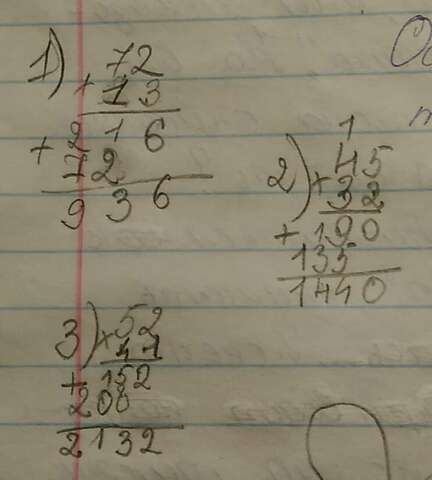 1) 72
× 13
+ 216
72
936
1
2) × 45
32
+ 190
135
1440
3) × 52
41
+ 152
208
2132